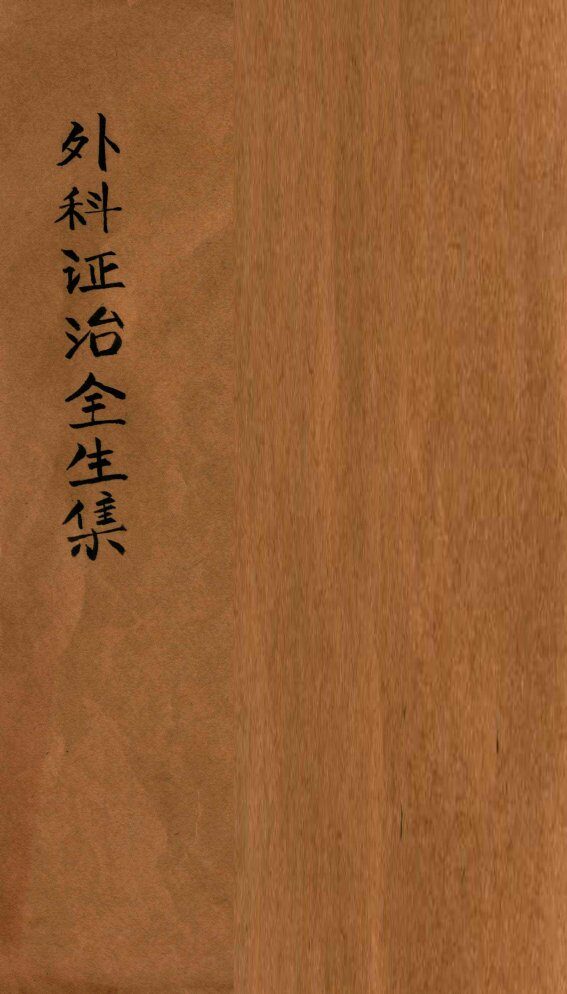 外科证治全生集